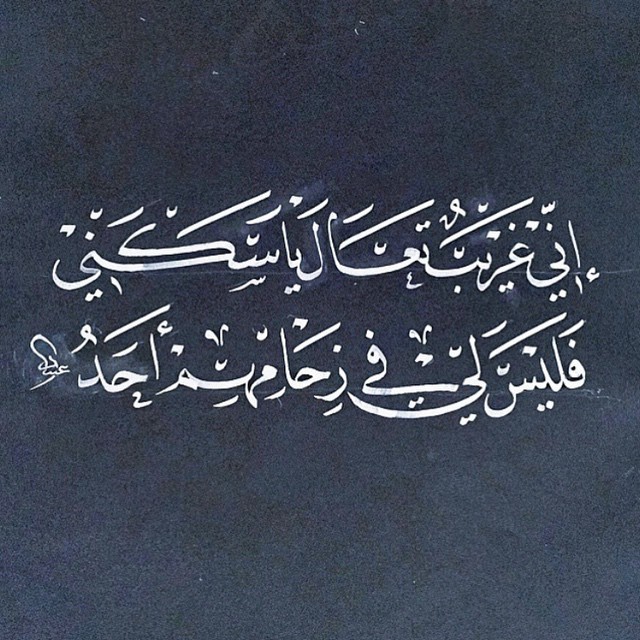 إِنِّي غَرِيبٌ تَعَالَ يَا سَكَنِي
فَلَيْسَ لِي فِي زِحَامِهِمْ أَحَدُ